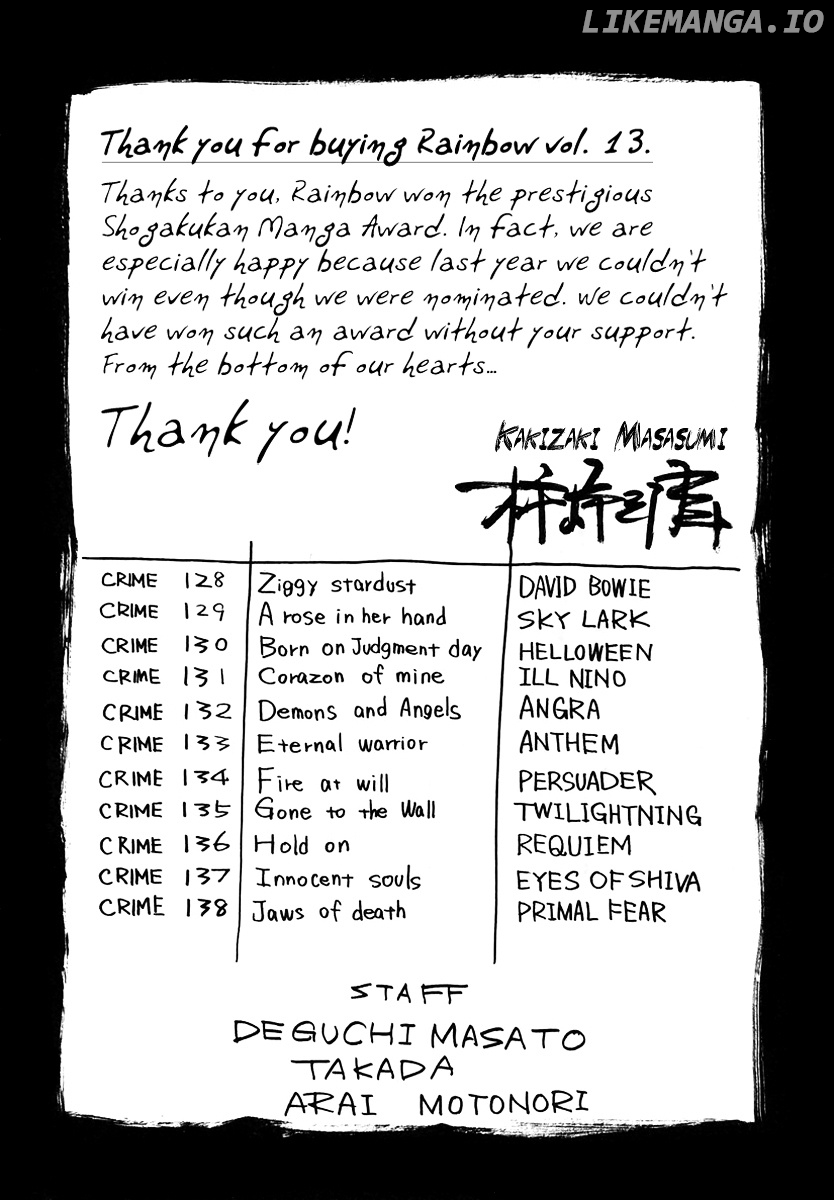 LIKEMANGA.IO
Thank you for buying Rainbow vol. 13.
Thanks to you, Rainbow won the prestigious
Shogakukan Manga Award. In fact, we are
especially happy because last year we couldn't
win even though we were nominated. We couldn't
have won such an award without your support.
From the bottom of our hearts...
Thank you!
KAKIZAKI MASASUMI
CRIME 128 Ziggy stardust DAVID BOWIE
CRIME 129 A rose in her hand SKY LARK
CRIME 130 Born on Judgment day HELLOWEEN
CRIME 131 Corazon of mine ILL NINO
CRIME 132 Demons and Angels ANGRA
CRIME 133 Eternal warrior ANTHEM
CRIME 134 Fire at will PERSUADER
CRIME 135 Gone to the Wall TWILIGHTNING
CRIME 136 Hold on REQUIEM
CRIME 137 Innocent souls EYES OF SHIVA
CRIME 138 Jaws of death PRIMAL FEAR
STAFF
DEGUCHI MASATO
TAKADA
ARAI MOTONORI